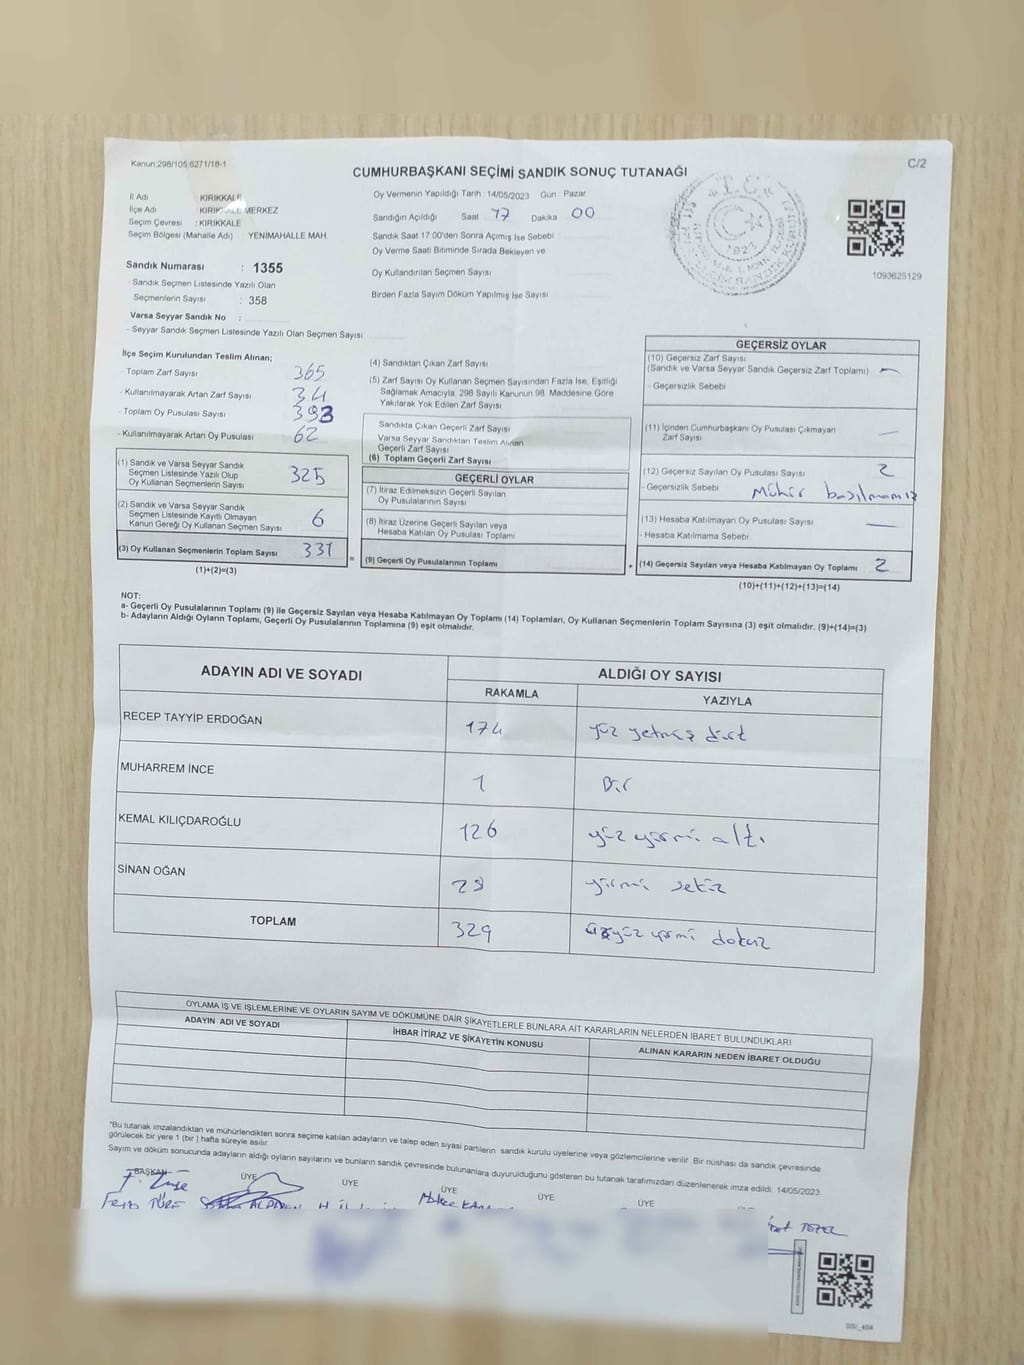 Kanun:298/105,6271/18-1
C/2
CUMHURBAŞKANI SEÇİMİ SANDIK SONUÇ TUTANAĞI
İl Adı : KIRIKKALE
İlçe Adı : KIRIKKALE MERKEZ
Seçim Çevresi : KIRIKKALE
Seçim Bölgesi (Mahalle Adı) : YENİMAHALLE MAH.
Sandık Numarası : 1355
- Sandık Seçmen Listesinde Yazılı Olan
Seçmenlerin Sayısı : 358
Varsa Seyyar Sandık No :
- Seyyar Sandık Seçmen Listesinde Yazılı Olan Seçmen Sayısı
Oy Vermenin Yapıldığı Tarih :14/05/2023 Gün : Pazar
Sandığın Açıldığı Saat 17 Dakika 00
Sandık Saat 17:00'den Sonra Açılmış İse Sebebi
Oy Verme Saati Bitiminde Sırada Bekleyen ve
Oy Kullandırılan Seçmen Sayısı
Birden Fazla Sayım Döküm Yapılmış İse Sayısı
T.C.
1923
1093625129
İlçe Seçim Kurulundan Teslim Alınan;
- Toplam Zarf Sayısı 365
- Kullanılmayarak Artan Zarf Sayısı 34
- Toplam Oy Pusulası Sayısı 393
- Kullanılmayarak Artan Oy Pusulası 62
(1) Sandık ve Varsa Seyyar Sandık
Seçmen Listesinde Yazılı Olup
Oy Kullanan Seçmenlerin Sayısı 325
(2) Sandık ve Varsa Seyyar Sandık
Seçmen Listesinde Kayıtlı Olmayan
Kanun Gereği Oy Kullanan Seçmen Sayısı 6
(3) Oy Kullanan Seçmenlerin Toplam Sayısı 331
(1)+(2)=(3)
=
(4) Sandıktan Çıkan Zarf Sayısı
(5) Zarf Sayısı Oy Kullanan Seçmen Sayısından Fazla İse, Eşitliği
Sağlamak Amacıyla, 298 Sayılı Kanunun 98. Maddesine Göre
Yakılarak Yok Edilen Zarf Sayısı
Sandıkta Çıkan Geçerli Zarf Sayısı
Varsa Seyyar Sandıktan Teslim Alınan
Geçerli Zarf Sayısı
(6) Toplam Geçerli Zarf Sayısı
GEÇERLİ OYLAR
(7) İtiraz Edilmeksizin Geçerli Sayılan
Oy Pusulalarının Sayısı
(8) İtiraz Üzerine Geçerli Sayılan veya
Hesaba Katılan Oy Pusulaları Toplamı
(9) Geçerli Oy Pusulalarının Toplamı
+
GEÇERSİZ OYLAR
(10) Geçersiz Zarf Sayısı
(Sandık ve Varsa Seyyar Sandık Geçersiz Zarf Toplamı) —
- Geçersizlik Sebebi
(11) İçinden Cumhurbaşkanı Oy Pusulası Çıkmayan
Zarf Sayısı —
(12) Geçersiz Sayılan Oy Pusulası Sayısı 2
- Geçersizlik Sebebi Mühür basılmamış
(13) Hesaba Katılmayan Oy Pusulası Sayısı —
- Hesaba Katılmama Sebebi
(14) Geçersiz Sayılan veya Hesaba Katılmayan Oy Toplamı 2
(10)+(11)+(12)+(13)=(14)
NOT:
a- Geçerli Oy Pusulalarının Toplamı (9) ile Geçersiz Sayılan veya Hesaba Katılmayan Oy Toplamı (14) Toplamları, Oy Kullanan Seçmenlerin Toplam Sayısına (3) eşit olmalıdır. (9)+(14)=(3)
b- Adayların Aldığı Oyların Toplamı, Geçerli Oy Pusulalarının Toplamına (9) eşit olmalıdır.
ADAYIN ADI VE SOYADI ALDIĞI OY SAYISI
RAKAMLA YAZIYLA
RECEP TAYYİP ERDOĞAN 174 yüz yetmiş dört
MUHARREM İNCE 1 Bir
KEMAL KILIÇDAROĞLU 126 yüz yirmi altı
SİNAN OĞAN 28 yirmi sekiz
TOPLAM 329 üçyüz yirmi dokuz
OYLAMA İŞ VE İŞLEMLERİNE VE OYLARIN SAYIM VE DÖKÜMÜNE DAİR ŞİKAYETLERLE BUNLARA AİT KARARLARIN NELERDEN İBARET BULUNDUKLARI
ADAYIN ADI VE SOYADI İHBAR İTİRAZ VE ŞİKAYETİN KONUSU ALINAN KARARIN NEDEN İBARET OLDUĞU
*Bu tutanak imzalandıktan ve mühürlendikten sonra seçime katılan adayların ve talep eden siyasi partilerin sandık kurulu üyelerine veya gözlemcilerine verilir. Bir nüshası da sandık çevresinde
görülecek bir yere 1 (bir ) hafta süreyle asılır.
Sayım ve döküm sonucunda adayların aldığı oyların sayılarını ve bunların sandık çevresinde bulunanlara duyurulduğunu gösteren bu tutanak tarafımızdan düzenlenerek imza edildi. 14/05/2023
BAŞKAN ÜYE ÜYE ÜYE ÜYE ÜYE
TEZEL